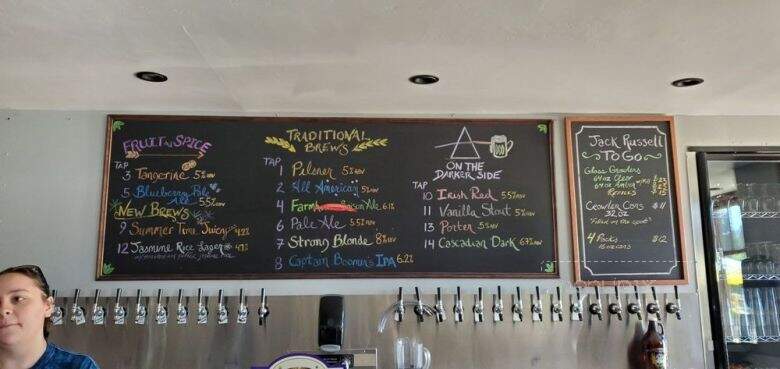 FRUIT 'N SPICE
TAP
3 Tangerine 5%ABV
5 Blueberry Pale
Ale 5.5%ABV
NEW BREWS
9 Summer Time Juicy 4.2%
12 Jasmine Rice Lager 4.7%
TRADITIONAL
BREWS
TAP
1 Pilsner 5%ABV
2 All American 5%ABV
4 Farm Ale 6.1%
6 Pale Ale 5.5%ABV
7 Strong Blonde 8%ABV
8 Captain Boomer's IPA 6.2%
ON THE
DARKER SIDE
TAP
10 Irish Red 5.5%ABV
11 Vanilla Stout 5%ABV
13 Porter 5%ABV
14 Cascadian Dark 6.7%ABV
Jack Russell
TO GO
Glass Growlers
64 oz Clear
64 oz Amber
Refills
Crowler Cans $11
32 oz
"Filled on the spot"
4 Packs $12
16 oz cans